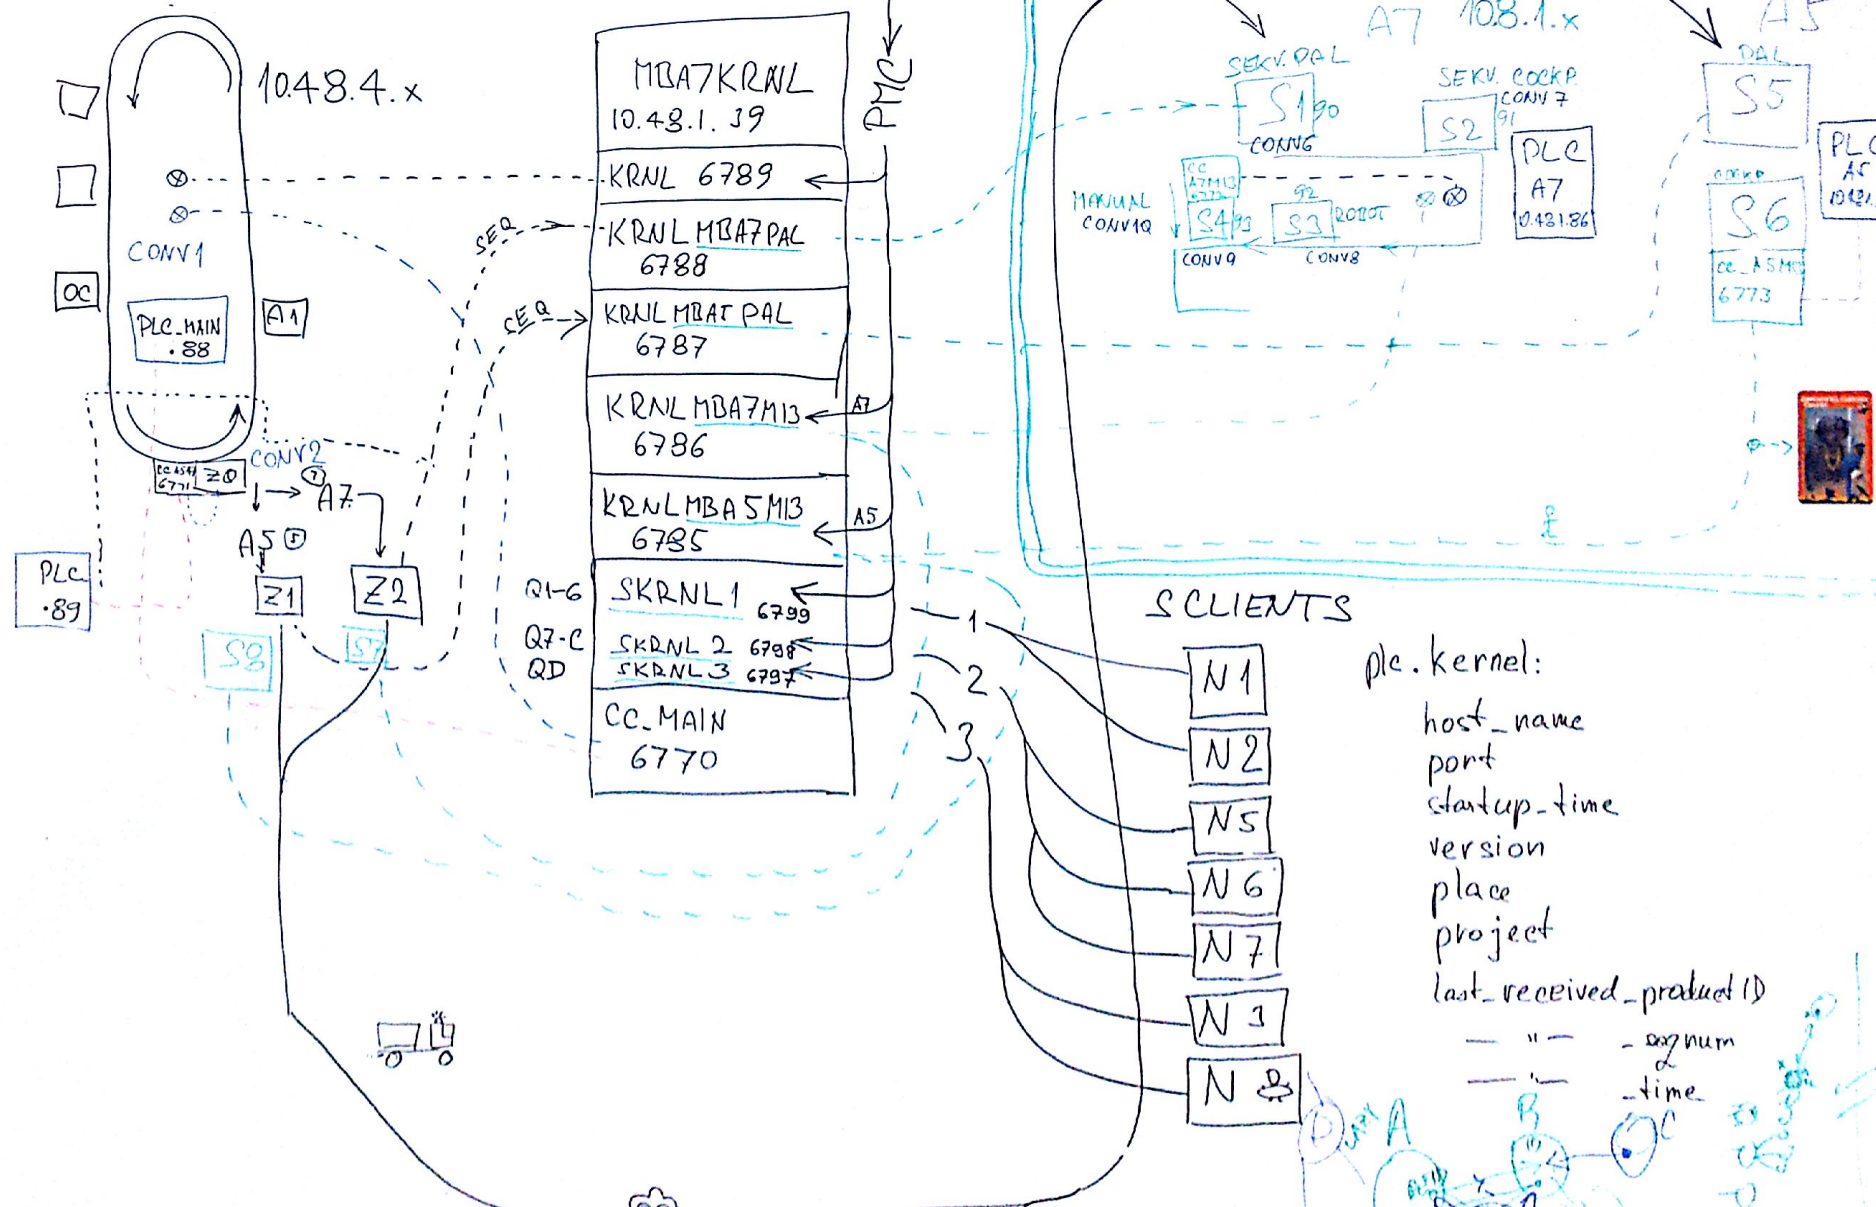 10.48.4.x
CONV1
PLC_MAIN
.88
A1
OC
CONV2
6771
Z0
A7
A5
PLC
.89
Z1
Z2
S8
S7
SEQ
SEQ
MBA7KRNL
10.48.1.39
KRNL 6789
KRNL MBA7PAL
6788
KRNL MBATPAL
6787
KRNL MBA7M13
6786
KRNL MBA5M13
6785
Q1-6
SKRNL1
6799
Q7-C
SKRNL 2 6798
QD
SKRNL 3 6797
CC_MAIN
6770
PMC
A7
A5
1
2
3
A7 10.8.1.x
A5
SEKV. PAL
S1 90
CONV6
SEKV. COCKP.
CONV7
S2 91
PLC
A7
MANUAL
CONV10
CC
A7M13
S4 93
92
S3 ROBOT
CONV9
CONV8
PAL
S5
PLC
A5
COCKP
S6
6773
S CLIENTS
N1
N2
N5
N6
N7
N3
N
plc.kernel:
host_name
port
startup_time
version
place
project
last_received_productID
— " — _seqnum
— " — _time
D
LAZY
A
B
C